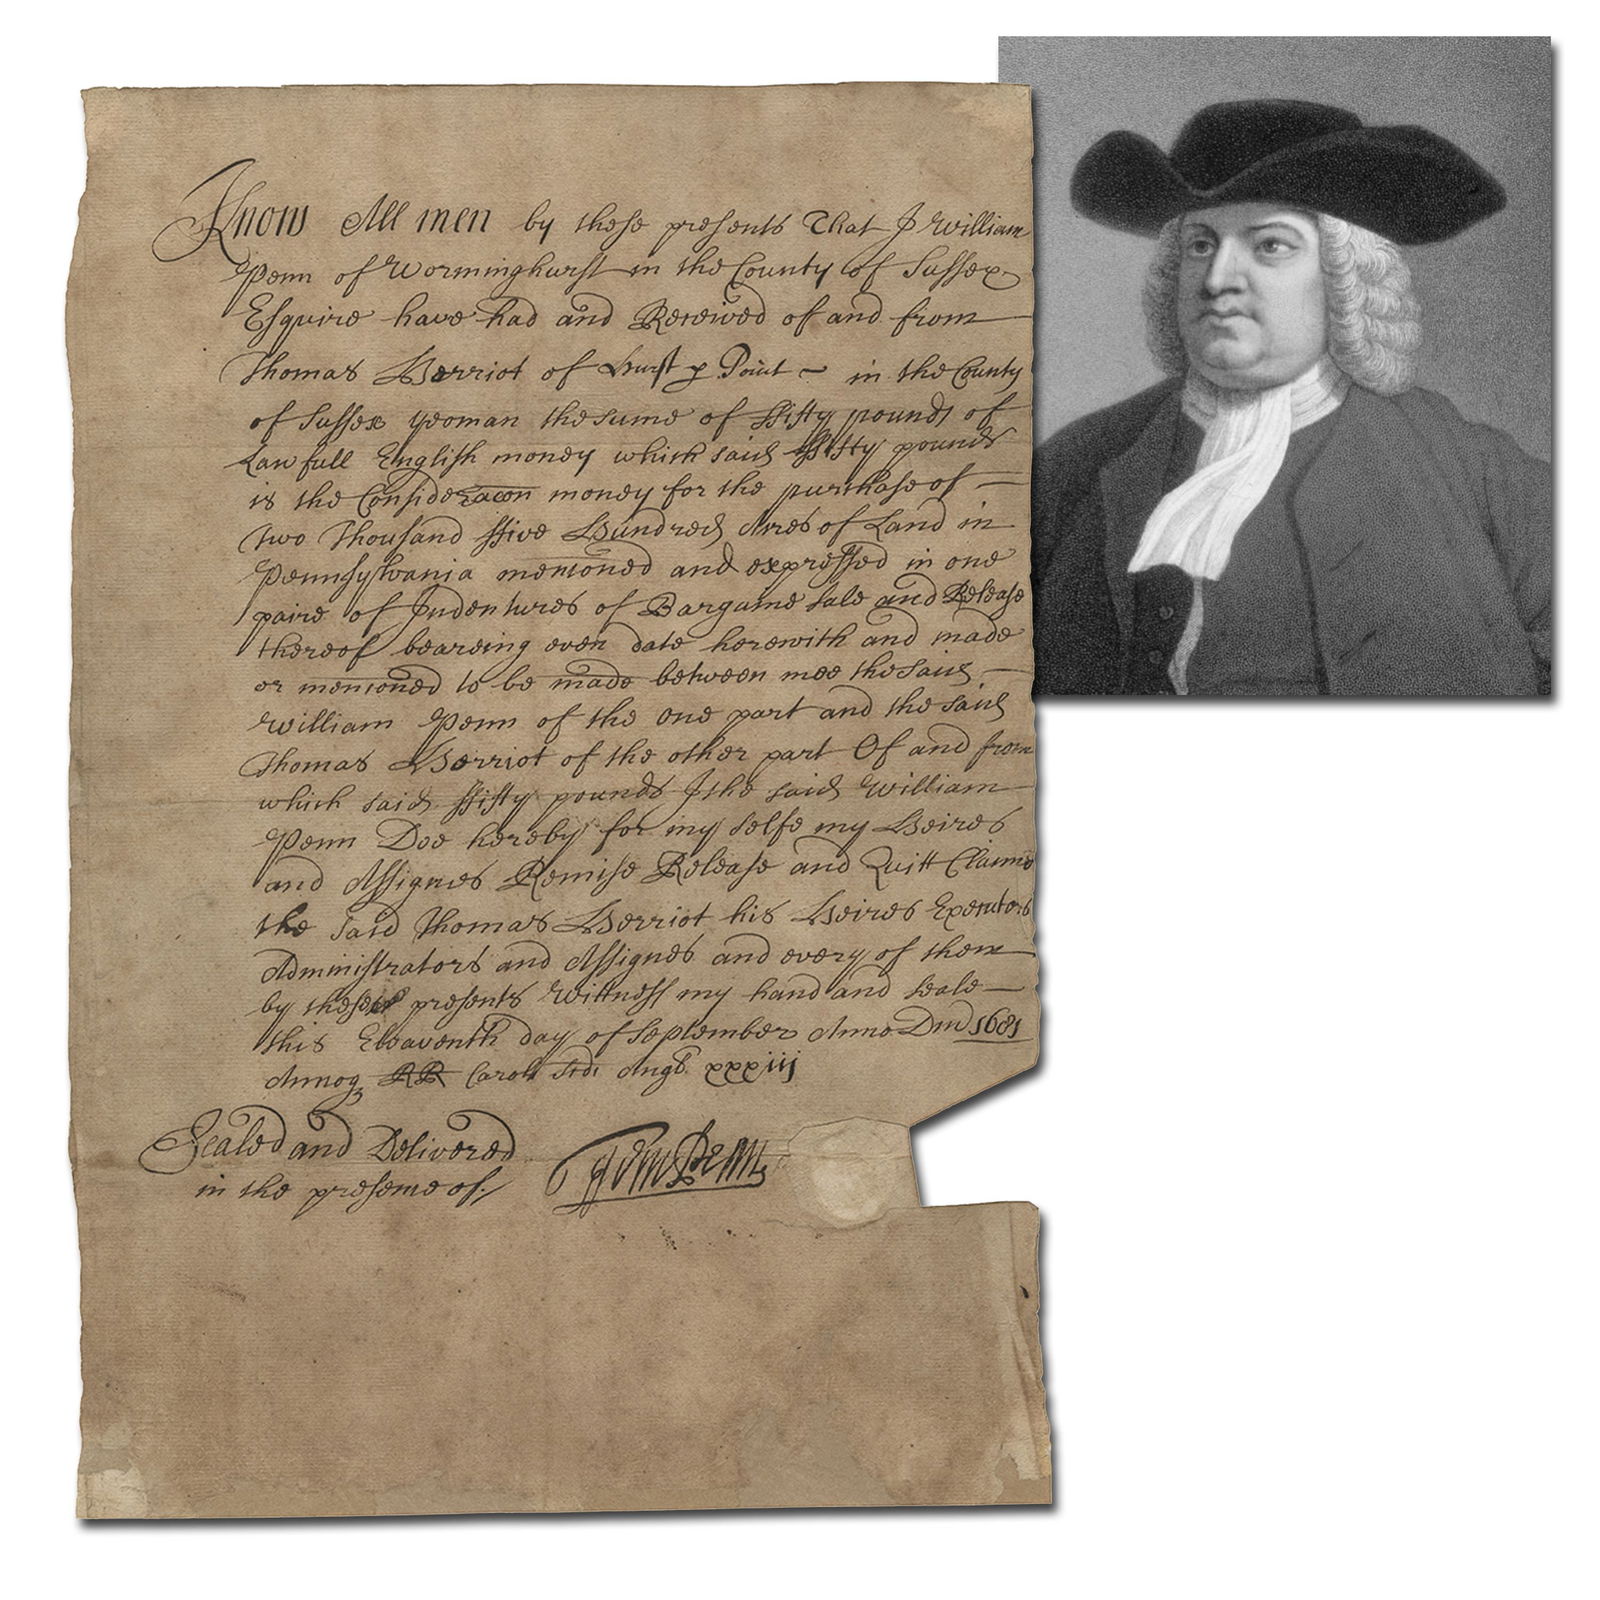 Know All men by these presents That I William
Penn of Worminghurst in the County of Sussex
Esquire have had and Received of and from
Thomas Herriot of Hurst p Point in the County
of Sussex yeoman the sume of ffifty pounds of
Lawfull English money which said ffifty pounds
is the Consideracon money for the purchase of
two Thousand ffive Hundred Acres of Land in
Pennsylvania menconed and expressed in one
paire of Indentures of Bargaine Sale and Release
thereof beareing even date herewith and made
or menconed to be made between mee the said
William Penn of the one part and the said
Thomas Herriot of the other part Of and from
which said ffifty pounds I the said William
Penn Doe hereby for my selfe my Heires
and Assignes Remise Release and Quitt Claime
the said Thomas Herriot his Heires Executors
Administrators and Assignes and every of them
by these presents Wittness my hand and seale
this Eleaventh day of September Anno Dm 1681
Annoq RR Caroli Scdi Angl xxxiij
Sealed and Delivered
in the presence of
Wm Penn